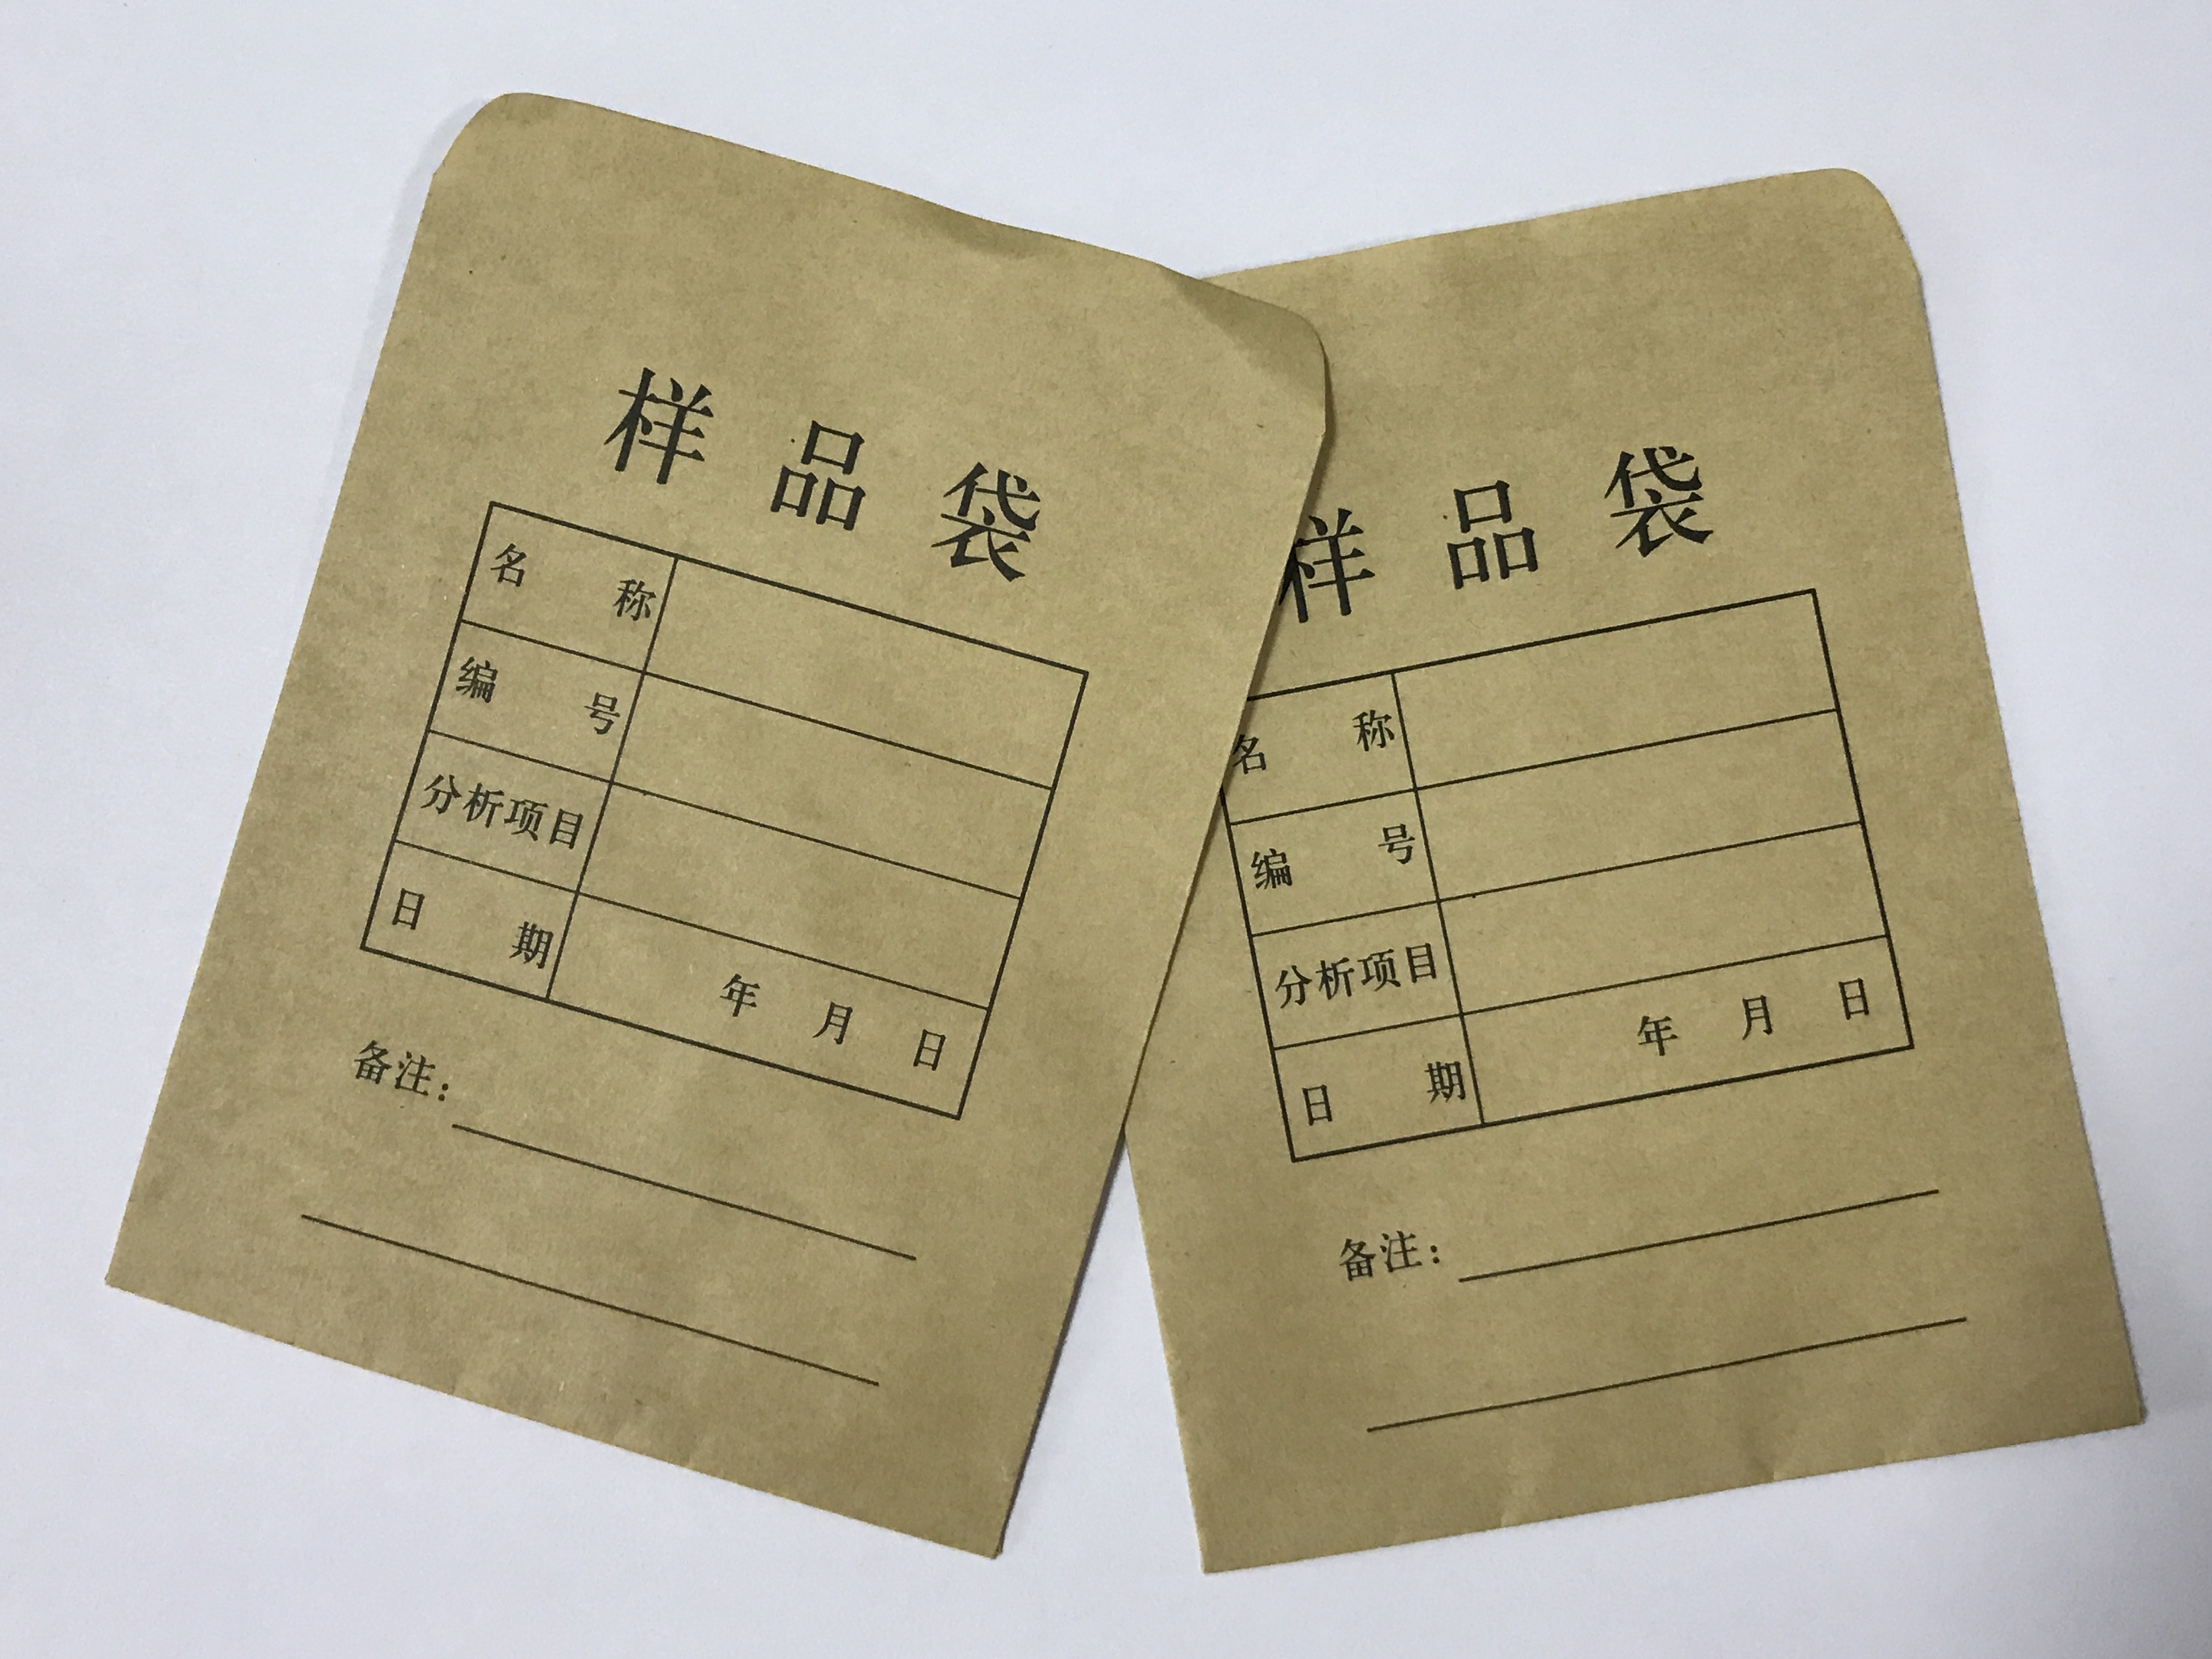 样品袋
名称
编号
分析项目
日期 年 月 日
备注：
样品袋
名称
编号
分析项目
日期 年 月 日
备注：